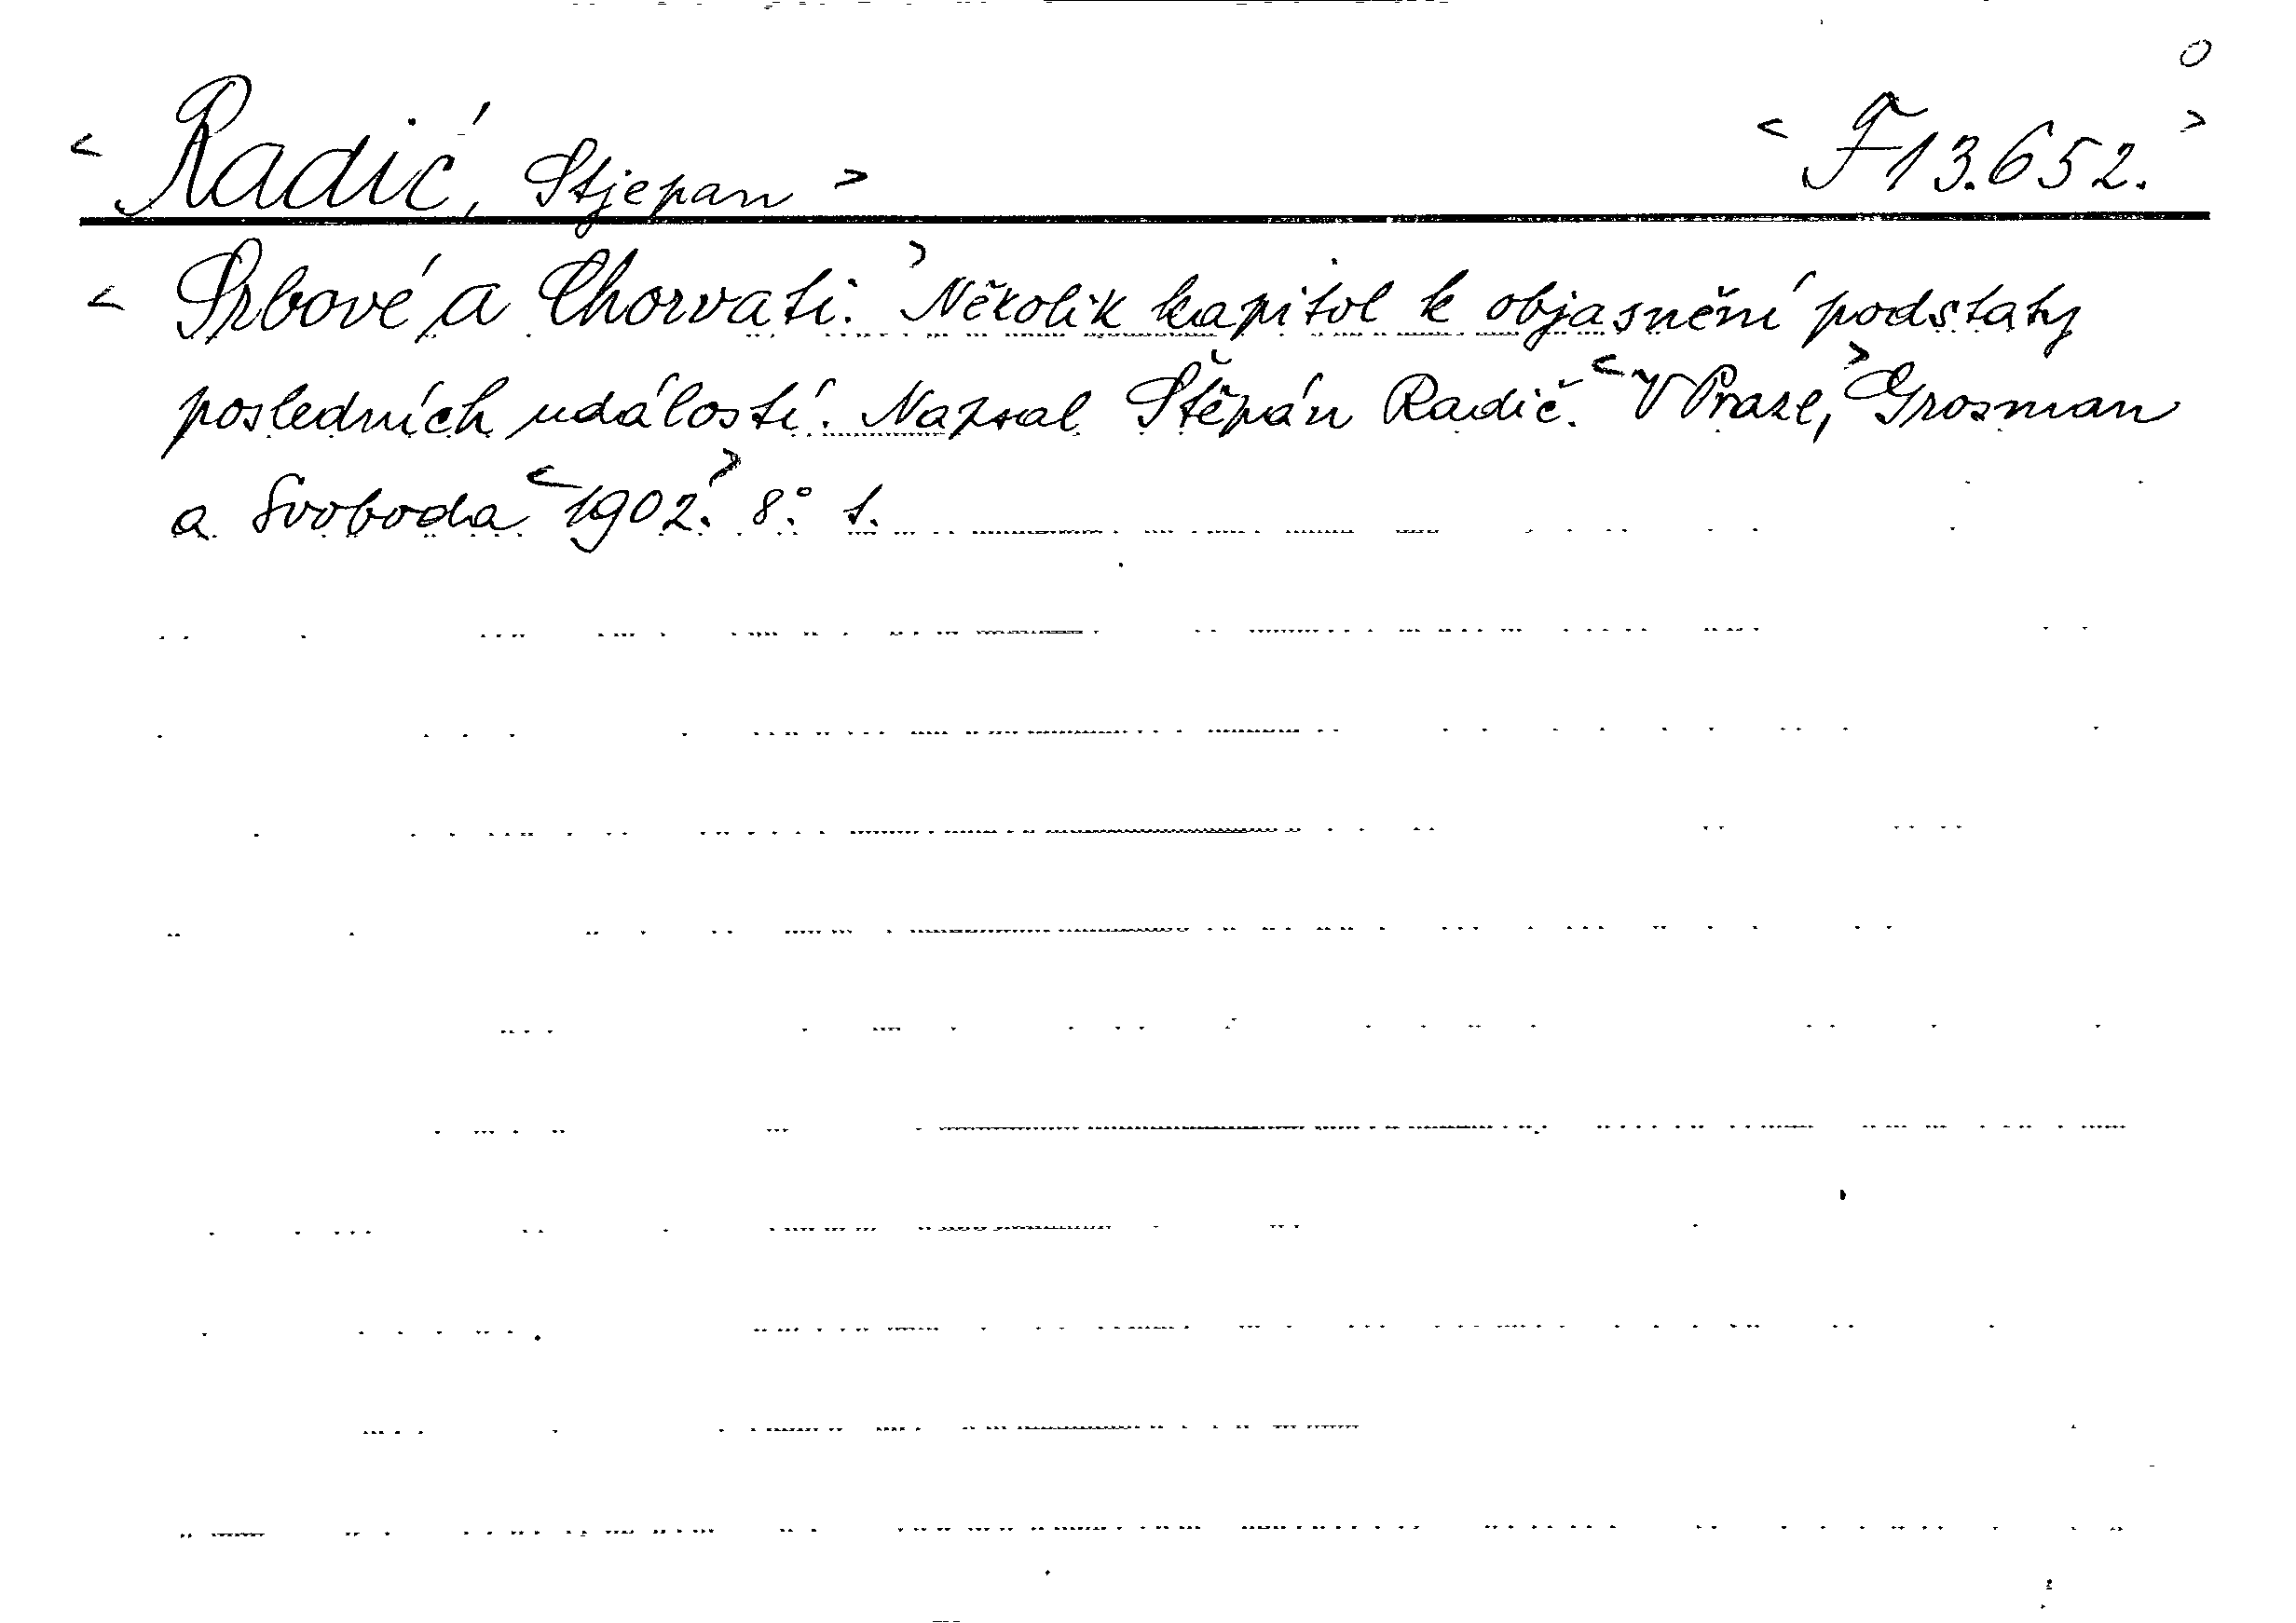 < Radić, Stjepan > < F 13.652. >
< Srbové a Chorvati. > Několik kapitol k objasnění podstaty
posledních událostí. Napsal Štěpán Radič. < V Praze, > Grosman
a Svoboda < 1902. > 8.° 1.